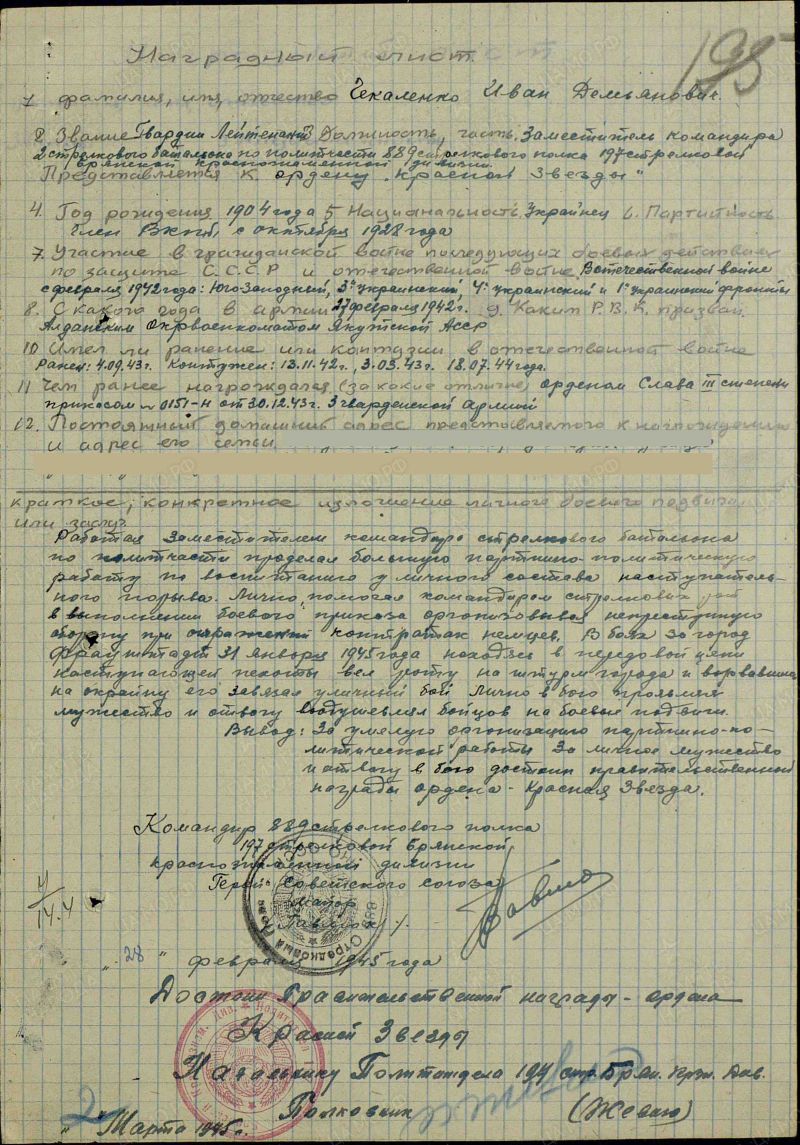 195
Наградный лист
1 фамилия, имя, отчество Чекаленко Иван Демьянович.
2 Звание Гвардии Лейтенант 3 Должность, часть, Заместитель командира
2 стрелкового батальона по политчасти 889 стрелкового полка 197 стрелковой
Брянской краснознаменной дивизии
Представляется к ордену "Красной Звезды"
4. Год рождения 1904 года 5 Национальность Украинец 6. Партийность
Член ВКПб, с октября 1928 года
7. Участие в гражданской войне последующих боевых действиях
по защите С.С.С.Р и отечественной войне, В отечественной войне
с февраля 1942 года: Юго-Западный, 3й Украинский 4й Украинский и 1й Украинский фронты
8. С какого года в армии 27 февраля 1942 г. 9. Каким Р.В.К. призван.
Алданским Окрвоенкоматом Якутской Асср
10 Имел ли ранение или контузии в отечественной войне
Ранен: 4.09.43г. Контужен: 13.11.42г., 3.03.43г. 18.07.44 года.
11 Чем ранее награждался (за какие отличие) орденом Слава III степени
приказом № 0151-н от 30.12.43г. 3 гвардейской Армии
12. Постоянный домашний адрес представляемого к награждению
и адрес его семьи
краткое, конкретное изложение личного боевого подвига
или заслуг
Работая Заместителем командира стрелкового батальона
по политчасти проделал большую партийно-политическую
работу по воспитанию у личного состава наступатель-
ного порыва. Лично помогая командирам стрелковых рот
в выполнении боевого приказа организовывал неприступную
оборону при отражении контратак немцев. В боях за город
Фраунштадт 31 января 1945 года находясь в передовой цепи
наступающей пехоты вел роту на штурм города и ворвавшись
на окрайну его завязал уличный бой Лично в бою проявлял
мужество и отвагу воодушевлял бойцов на боевые подвиги.
Вывод: За умелую организацию партийно-по-
литической работы За личное мужество
и отвагу в бою достоин правительственной
награды ордена - Красная Звезда.
Командир 889 стрелкового полка
197 стрелковой Брянской
краснознаменной дивизии
Герой Советского союза
майор
/Павлюк/.
4/14.4
"28" февраля 1945 года
Достоин Правительственной награды - ордена
Красной Звезды
Начальнику Политотдела 197 стр. Брян. Крзн. див.
Полковник
2 " Марта 1945 г.